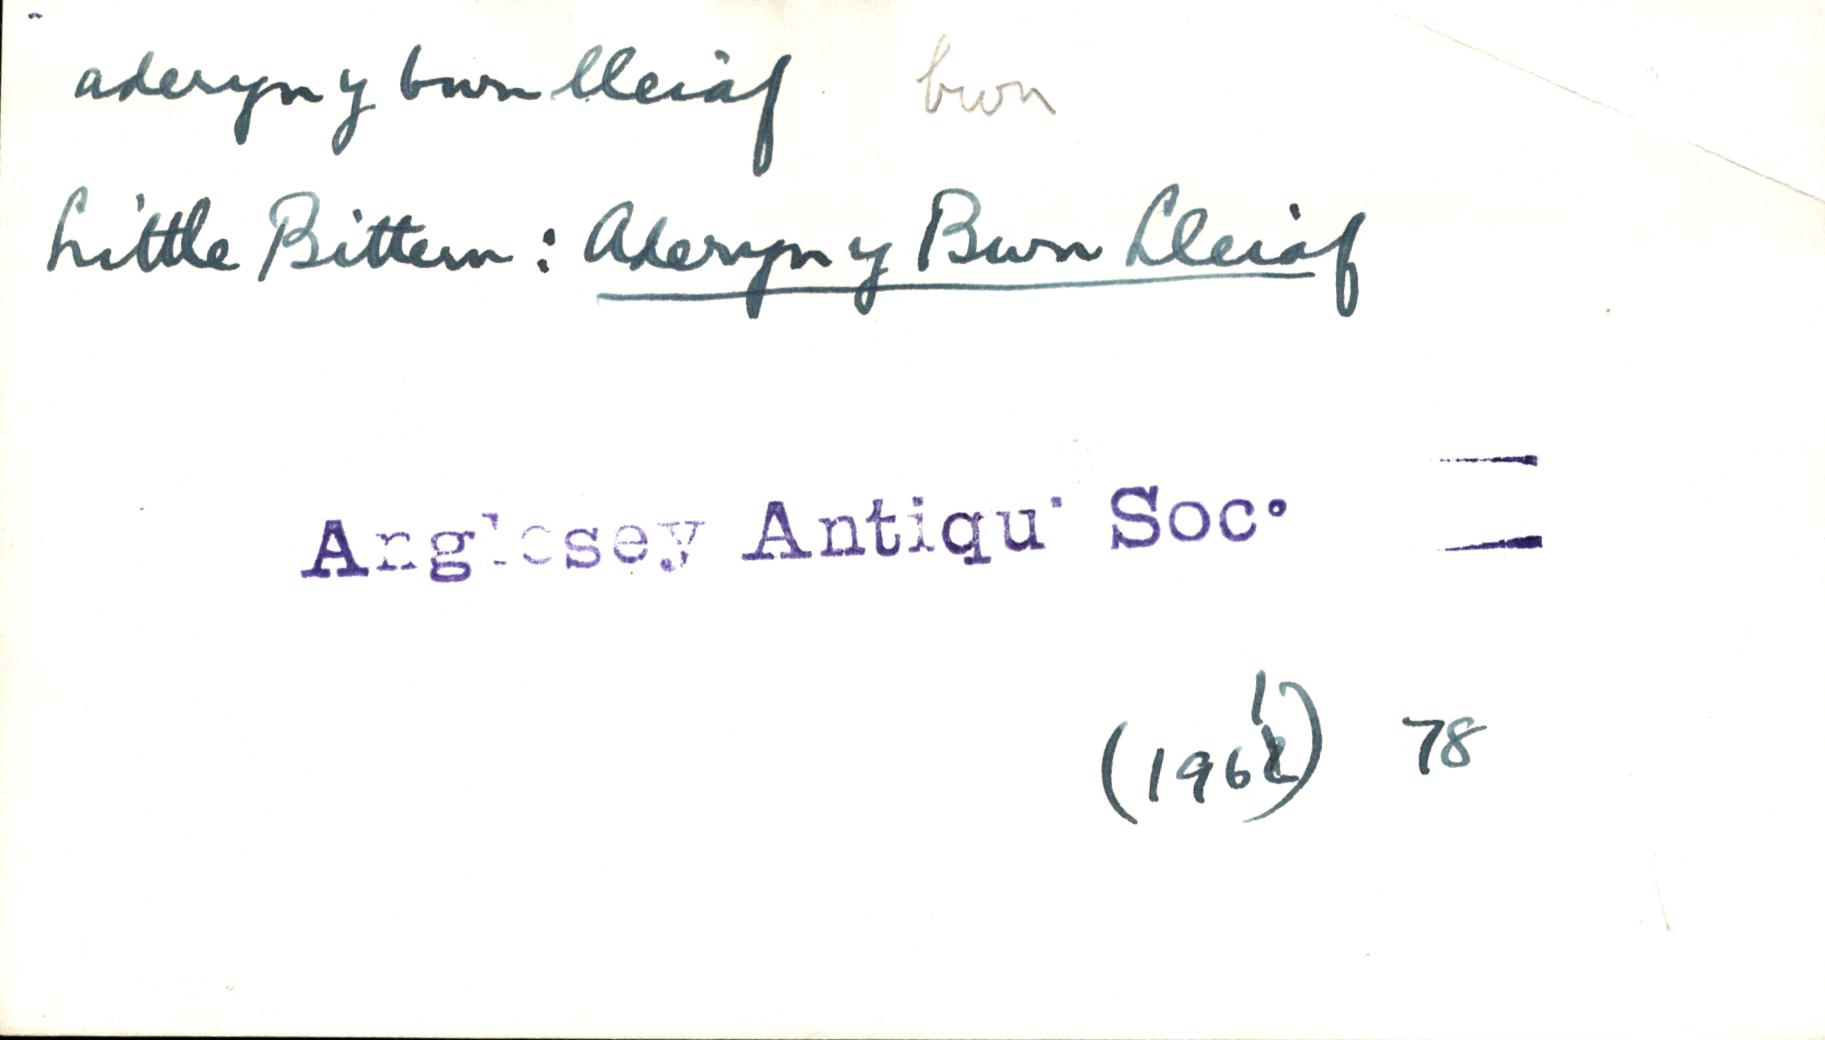 aderyn y bwn lleiaf bwn
Little Bittern: Aderyn y Bwn Lleiaf
Anglesey Antiqu. Soc.
(1961) 78